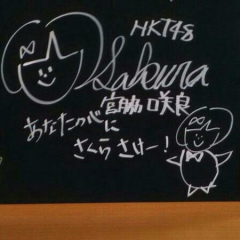 HKT48
Sakura
宮脇咲良
あなたの心に
さくらさけー!